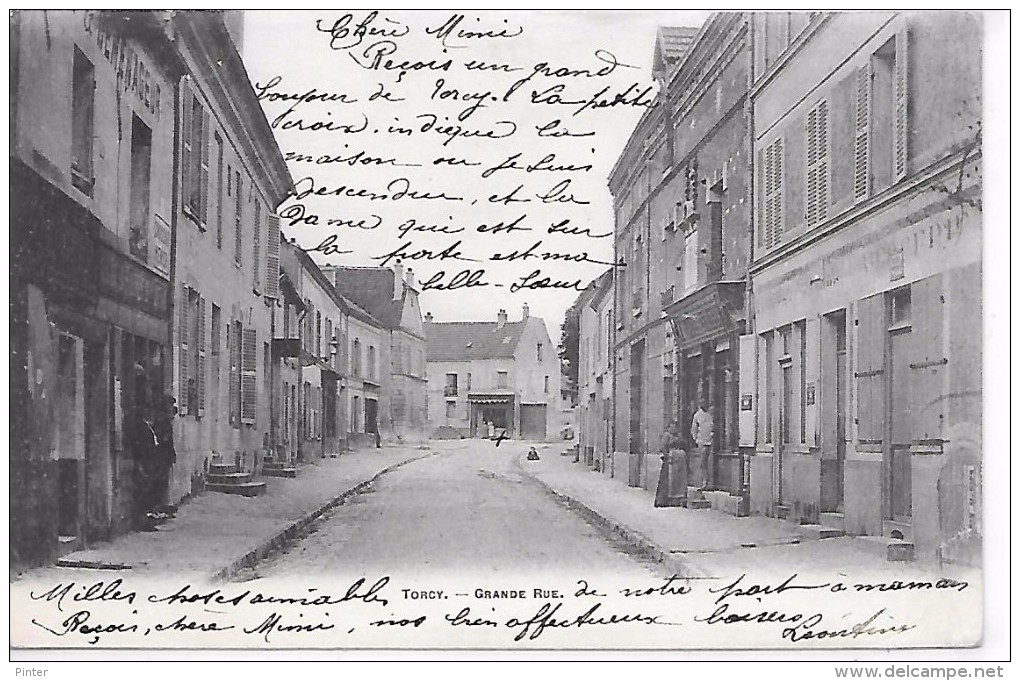 Chère Mimi
Reçois un grand
bonjour de Torcy. La petite
croix indique la
maison ou je suis
descendue, et la
Dame qui est sur
la porte est ma
belle-soeur
MENAGER
TORCY. — GRANDE RUE.
Milles choses aimables de notre part à maman
Reçois, chère Mimi, nos bien affectueux baisers
Léontine
Pinter
www.delcampe.net